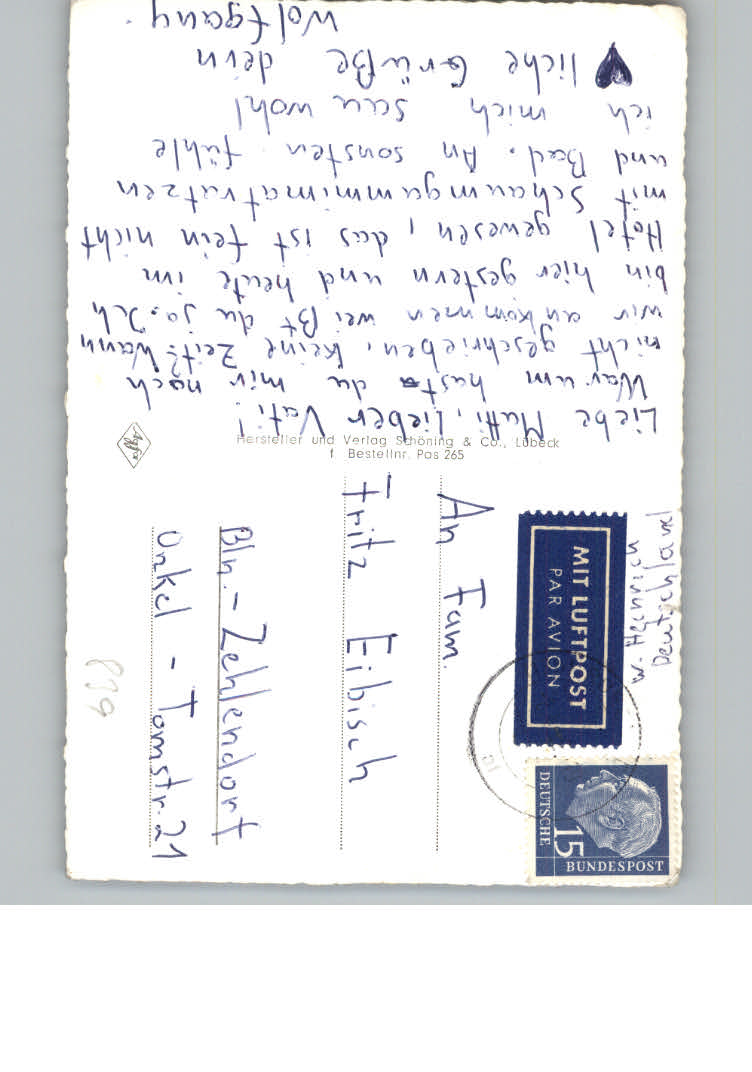 Liebe Mutti, Lieber Vati!
Warum hast du mir noch
nicht geschrieben, keine Zeit? Wann
wir ankommen weißt du ja. Ich
bin hier gestern und heute im
Hotel gewesen, das ist fein nicht
mit Schaumgummimatratzen
und Bad. An sonsten fühle
ich mich sau wohl
liche Grüße dein
Wolfgang.
Hersteller und Verlag Schöning & Co., Lübeck
f. Bestellnr. Pas 265
Agfa
An Fam.
Fritz Eibisch
Bln.-Zehlendorf
Onkel-Tomstr. 21
MIT LUFTPOST
PAR AVION
DEUTSCHE
BUNDESPOST
15
Deutschland
839